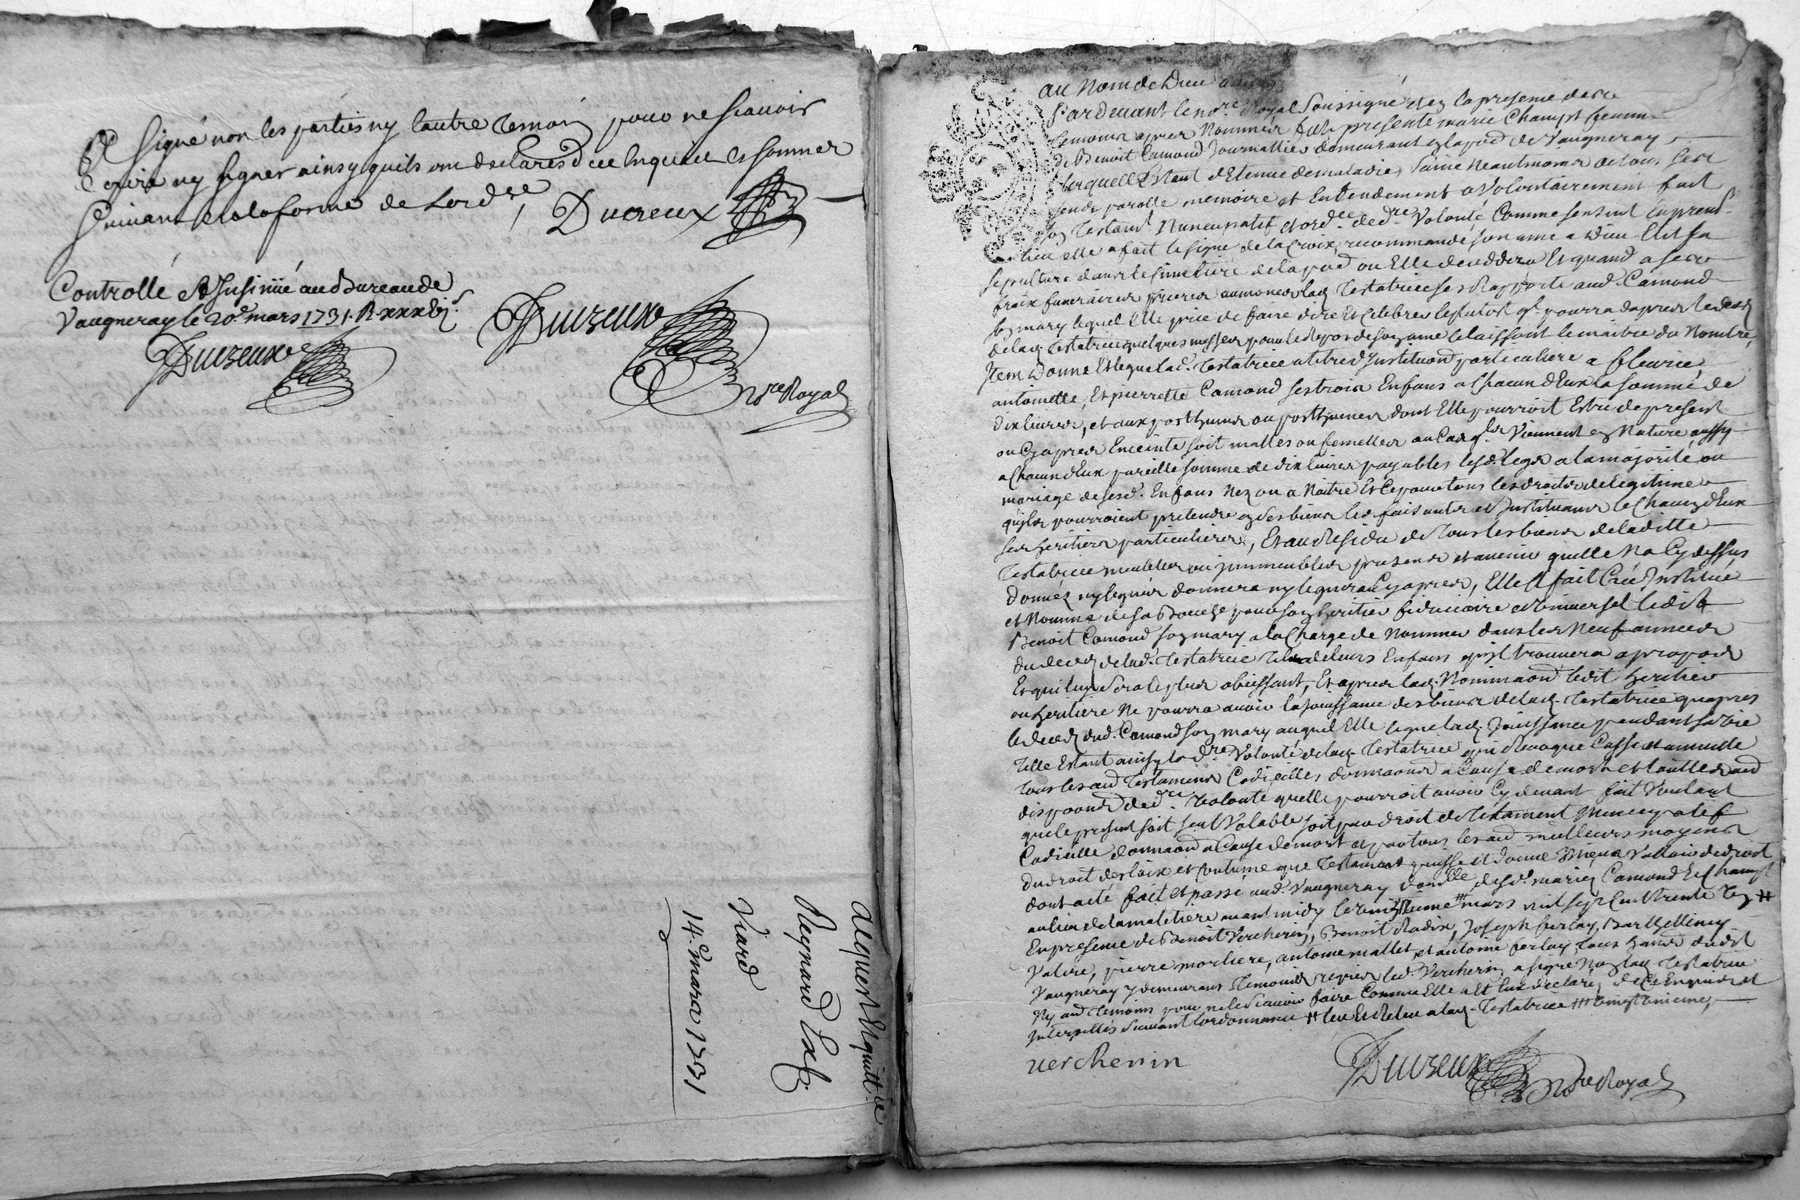 Et signé non les parties ny lautre temoin pour ne scavoir
ecrire ny signer ainsy quils ont declarés de ce enquis et sommés
suivant et a la forme de Lordce, Ducreux
Controllé et Insinué au Bureau de
Vaugneray le 20e mars 1731. R xxx
Ducreux
Ducreux
nre Royal
alquest et quittce
Reynard
Viard
14e mars 1731
au Nom de Dieu
Pardevant le nore Royal Soussigné et en la presence des
temoins apres Nommés fut presente marie Champt femme
de Benoit Camond Journallier demeurant en la pad de Vaugneray
lerquelle Estant detenue de maladie, Saine neantmoins de tous ses
sends parolle memoire et Entendement a Volontairement fait
son Testamt Nuncupatif et ordce de dre Volonté Comme sensuit En premr
lieu elle a fait le signe de la Croix, recommandé son ame a Dieu Elit sa
sepulture dans le Cimetiere de la pad ou Elle decedera Et quand a ses
fraix funeraires prieres aumones lad Testatrice ses Rapporte aud Camond
son mary lequel Elle prie de faire dire Et Celebrer le plutot ql pourra dapres le deces
de lad Testatrice quelques messes pour le Repos de son ame le laissant le maitre du Nombre,
Item Donne Et legue lad. Testatrice a titre d'Institution particuliere a fleurie,
antoinette, Et pierrette Camond ses trois Enfans a Chacun d'Eux la somme de
dix livres, et aux posthume ou posthumes dont Elle pourroit Estre de present
ou Cy apres Enceinte soit malles ou femelles au Cas qls Viennent en Nature aussy
a Chacun d'Eux pareille somme de dix livres payables lesd. legs a la majorité ou
mariage de sesd. Enfans Nez ou a Naitre Et Ce pour tous les droits de legitime
quils pourroient pretendre en ses biens les faisants et Instituants le Chacun d'Eux
ses heritiers particuliers, Et au Residu de tous les biens de laditte
Testatrice meubles ou immeubles presents et avenir quelle Na Cy dessus
donnez ny leguéz donnera ny leguera Cy apres, Elle A fait Créé Institué
et Nommé de sa Bouche pour son heritier fiduciaire et Universel ledit
Benoit Camond son mary a la Charge de Nommer dans les Neuf années
du deces de lad. Testatrice Tel de leurs Enfans quil trouvera a propos
Et qui luy Sera le plus obeissant, Et apres lad. Nominaond ledit heritier
ou heritiere Ne pourra avoir la jouissance des biens de lad Testatrice quapres
le deces dud. Camond son mary auquel Elle legue lad Jouissance pendant sa vie
Telle Estant ainsy la dre Volonté de lad Testatrice qui Revoque Casse et annulle
tous les aud Testaments Codicilles donnaond a Cause de mort et touttes aud
dispoond de dre Volonté quelle pourroit avoir Cy devant fait Voulant
que le present soit seul Valable soit par droit de Testament Nuncupatif
Codicille donnaond a Cause de mort et par tous les aud meilleurs moyens
du droit des loix et Coutume que Testament puisse et doive Mieux Valloir de droit
dont acte fait et passé aud. Vaugneray desd. mariez Camond Et Champt
au lieu de la maletiere avant midy le mars mil sept Cent trente Un ⧺
En presence de Benoit Vercherin, Benoit Radix, Joseph ferlay, Barthellemy
Valere, pierre morliere, antoine mallet et antoine ferlay tous habts dudit
Vaugneray y demeurans Temoins requis led. Vercherin a signé Non lad Testatrice
Ny aud temoins pour ne le Scavoir faire Comme Elle a Et Eux declaréz de Ce Enquis et
Interpellés Suivant lordonnance ⧺ leu Et Releu a lad. Testatrice
verchenin
Ducreux
nre Royal